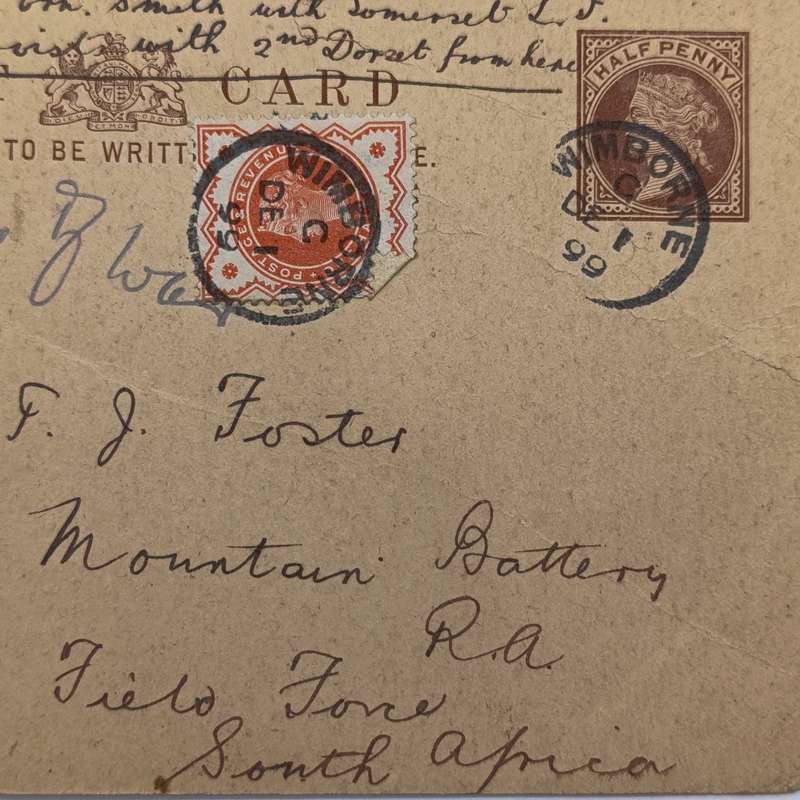 Smith with Somerset L.I.
with 2nd Dorset from here
CARD
HALF PENNY
DIEU ET MON DROIT
TO BE WRITT E.
POSTAGE & REVENUE
WIMBORNE
C
DE 1
99
WIMBORNE
C
DE 1
99
T. J. Foster
Mountain Battery
R.A.
Field Force
South Africa